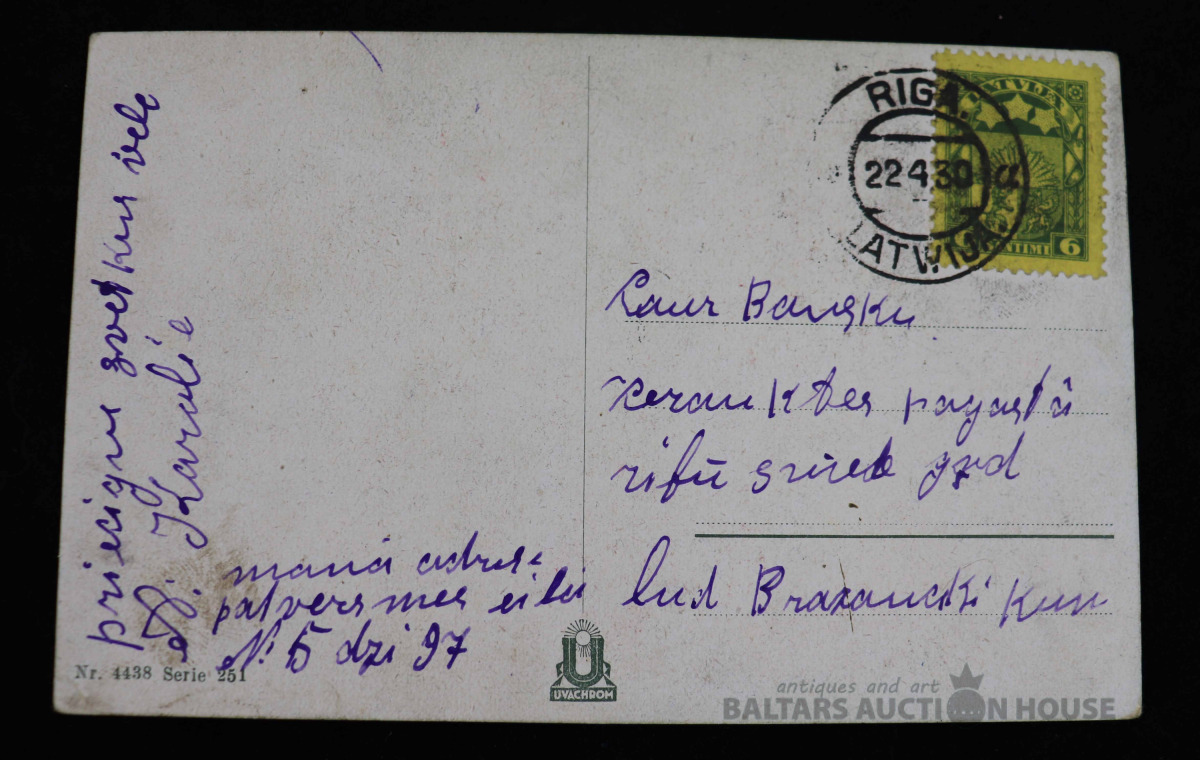 priecigus svetkus vele
J. Karolie
mana adrese
patversmes eila
№ 5 dzi 97
Nr. 4438 Serie 251
U
UVACHROM
RIGA.
22 4 30 a
LATWIJA.
LATVIJA
SANTIMI 6
Laur Bausku
pagastā
Lud Brazaucki Kun
antiques and art
BALTARS AUCTION HOUSE